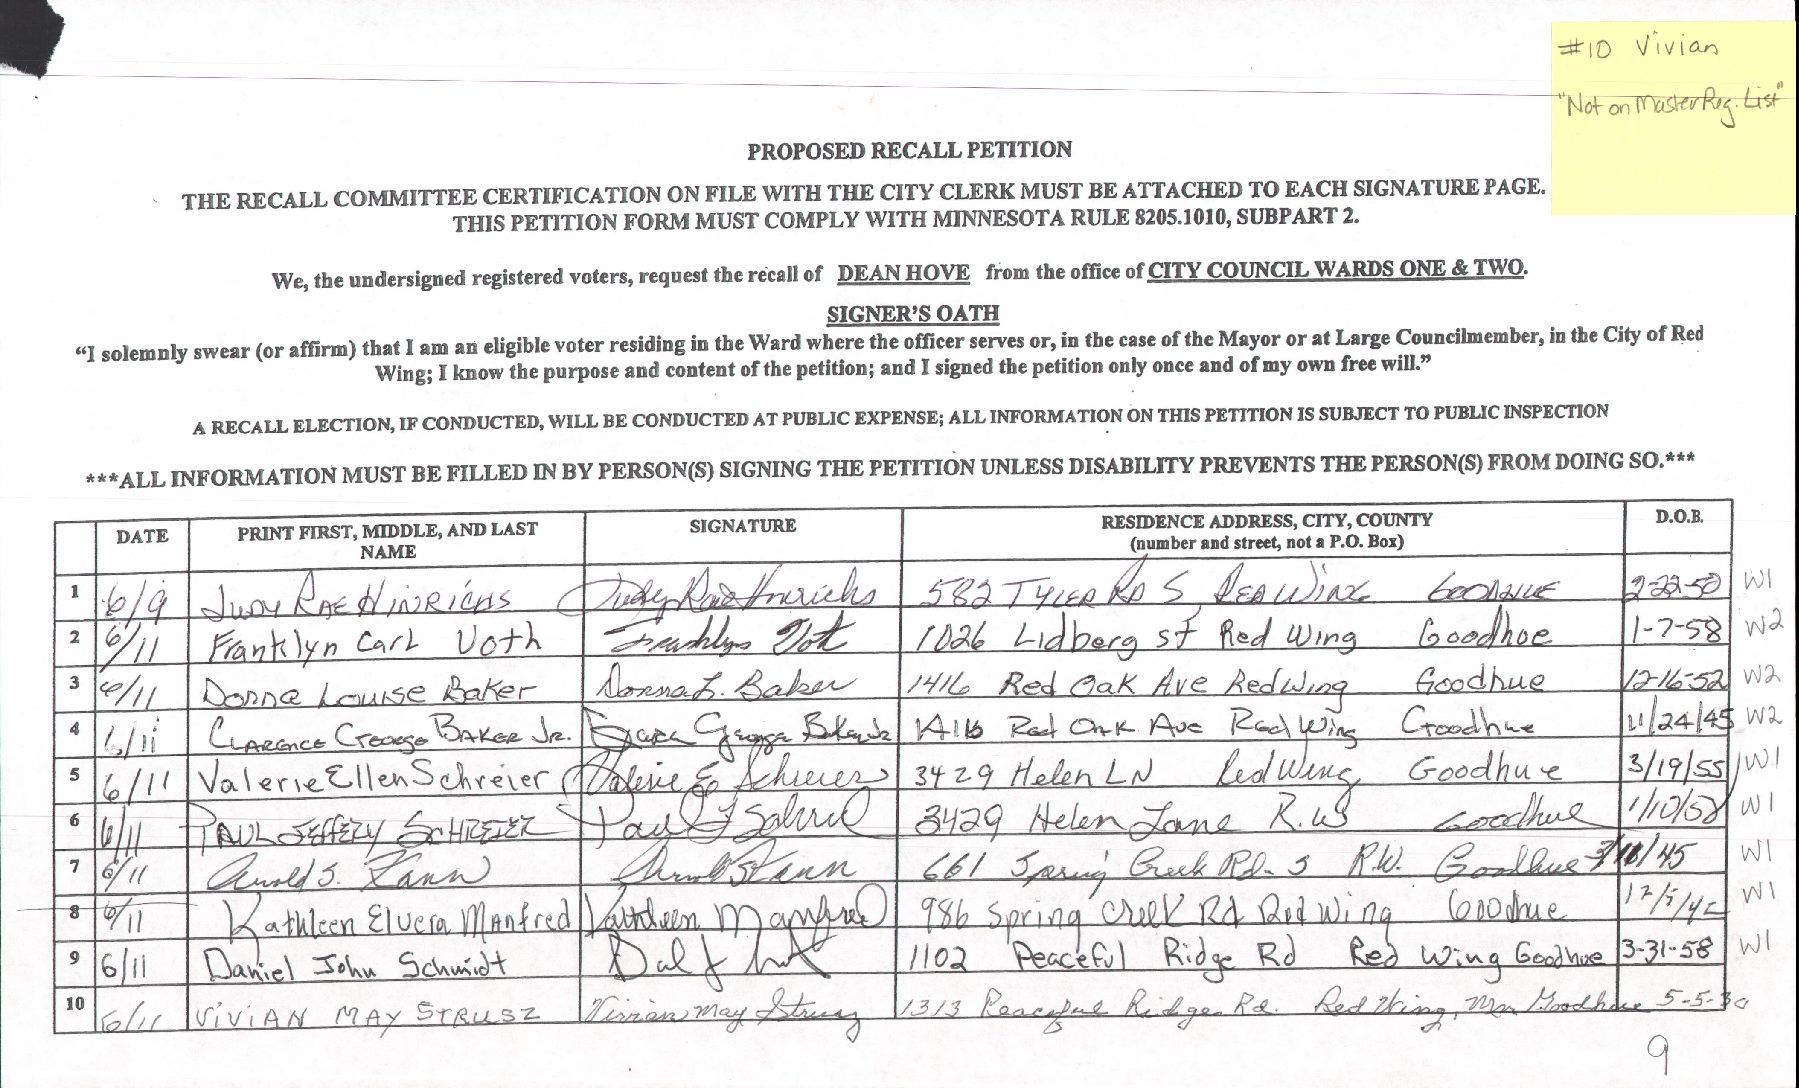 #10 Vivian
"Not on Master Reg. List"
PROPOSED RECALL PETITION
THE RECALL COMMITTEE CERTIFICATION ON FILE WITH THE CITY CLERK MUST BE ATTACHED TO EACH SIGNATURE PAGE.
THIS PETITION FORM MUST COMPLY WITH MINNESOTA RULE 8205.1010, SUBPART 2.
We, the undersigned registered voters, request the recall of DEAN HOVE from the office of CITY COUNCIL WARDS ONE & TWO.
SIGNER'S OATH
"I solemnly swear (or affirm) that I am an eligible voter residing in the Ward where the officer serves or, in the case of the Mayor or at Large Councilmember, in the City of Red
Wing; I know the purpose and content of the petition; and I signed the petition only once and of my own free will."
A RECALL ELECTION, IF CONDUCTED, WILL BE CONDUCTED AT PUBLIC EXPENSE; ALL INFORMATION ON THIS PETITION IS SUBJECT TO PUBLIC INSPECTION
***ALL INFORMATION MUST BE FILLED IN BY PERSON(S) SIGNING THE PETITION UNLESS DISABILITY PREVENTS THE PERSON(S) FROM DOING SO.***
DATE PRINT FIRST, MIDDLE, AND LAST NAME SIGNATURE RESIDENCE ADDRESS, CITY, COUNTY (number and street, not a P.O. Box) D.O.B.
1 6/9 JUDY RAE HINRICHS Judy Rae Hinrichs 582 TYLER RD S RED WING GOODHUE 2-22-50 W1
2 6/11 Franklyn Carl Voth Franklyn Voth 1026 Lidberg st Red Wing Goodhoe 1-7-58 W2
3 6/11 Donna Louise Baker Donna L. Baker 1416 Red Oak Ave Red Wing Goodhue 12-16-52 W2
4 6/11 CLARENCE George BAKER JR. George Baker Jr 1416 Red Oak Ave Red Wing Goodhue 11/24/45 W2
5 6/11 Valerie Ellen Schreier Valerie E Schreier 3429 Helen LN Red Wing Goodhue 3/19/55 W1
6 6/11 PAUL JEFFERY SCHREIER Paul J Schreier 3429 Helen Lane R.W Goodhue 1/10/58 W1
7 6/11 Arnold S. Kann Arnold S Kann 661 Spring Creek Rd. S R.W. Goodhue /45 W1
8 6/11 Kathleen Elvera Manfred Kathleen Manfred 986 Spring Creek Rd Red Wing Goodhue W1
9 6/11 Daniel John Schmidt 1102 Peaceful Ridge Rd Red Wing Goodhue 3-31-58 W1
10 6/11 VIVIAN MAY STRUSZ Vivian May Strusz 1313 Peaceful Ridge Rd. Red Wing, Mn Goodhue
9